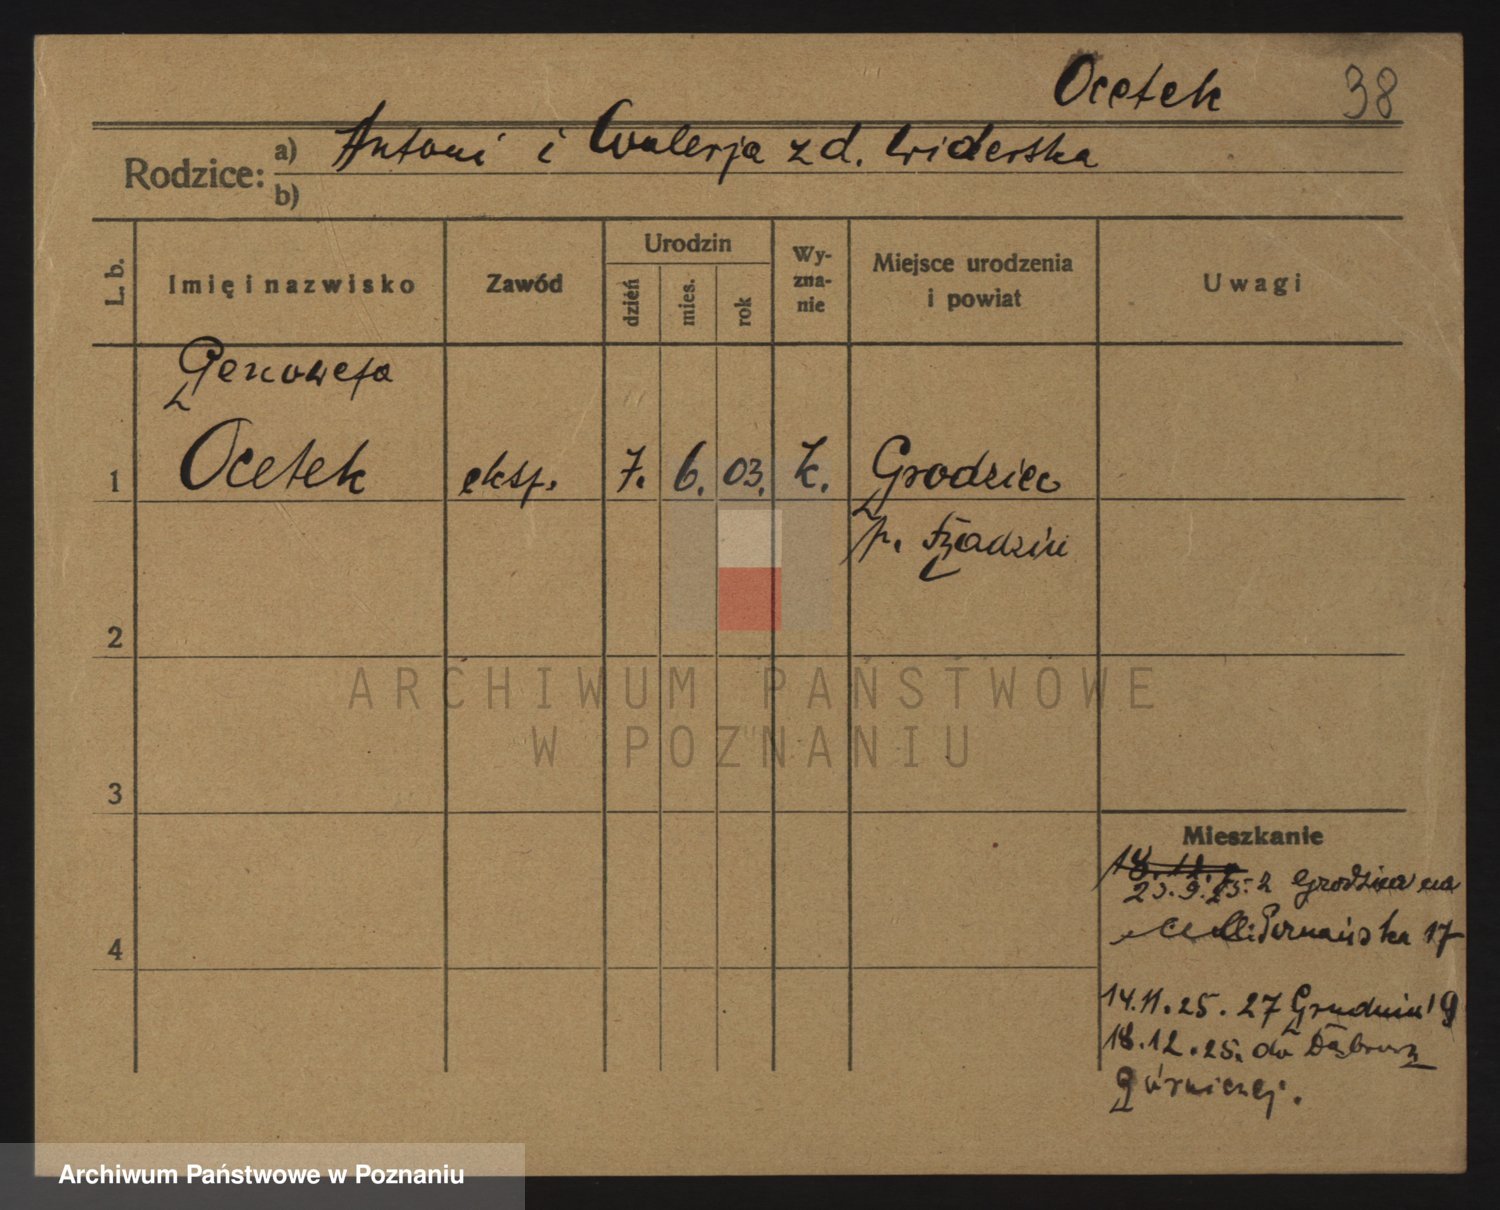 Ocetek 38
Rodzice: a) Antoni i Walerja z d. Widerska
b)
L. b. Imię i nazwisko Zawód Urodzin dzień mies. rok Wyznanie Miejsce urodzenia i powiat Uwagi
Genowefa
1 Ocetek eksp. 7. 6. 03. k. Grodziec
p.
2
ARCHIWUM PAŃSTWOWE
W POZNANIU
3
Mieszkanie
18.12.
23.9.25. z Grodzica na
Poznańska 17
4
14.11.25. 27 Grudnia 9
18.12.25. do Dąbrowy
Górniczej.
Archiwum Państwowe w Poznaniu